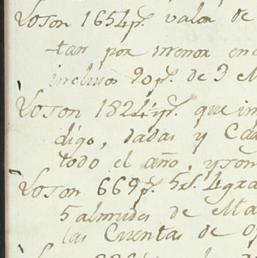 Loson 1654p.s valor de
tan por menor en
incluso 20p.s de 9 M
Loson 1824p.s que im
digo, dadas y Ca
todo el año, y son
Loson 669p.s 5r.s 4gra
5 almudes de Ma
las Cuentas de of